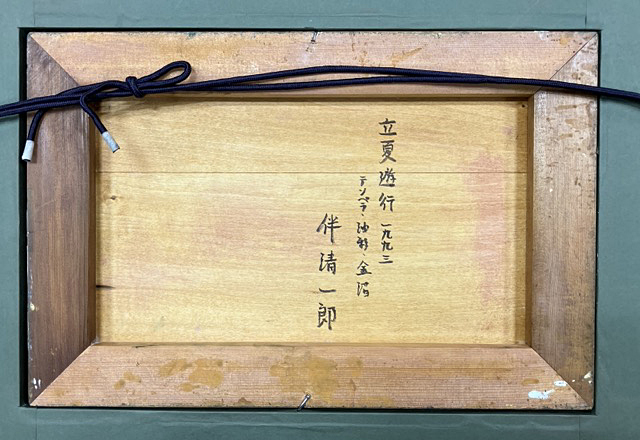 立夏遊行 一九九三
テンペラ・油彩・金箔
伴清一郎